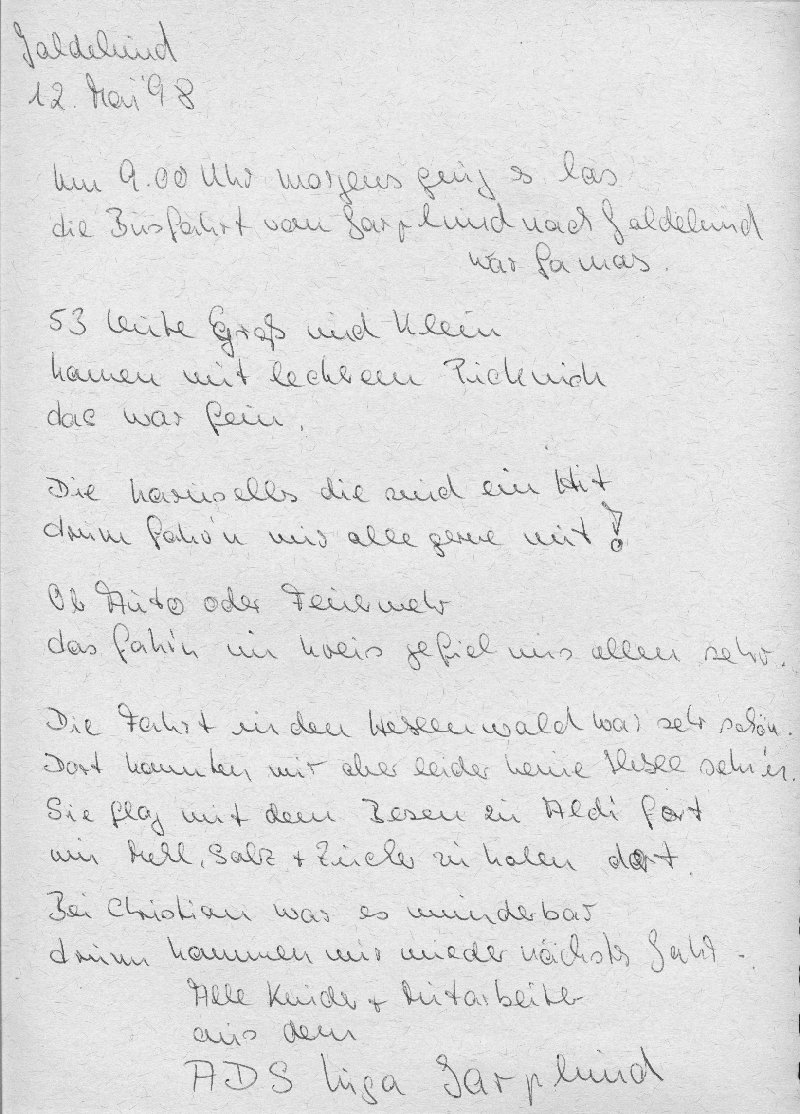 Goldelund
12. Mai '98
Um 9.00 Uhr morgens ging es los
die Busfahrt von Jarplund nach Goldelund
war famos.
53 Leute Groß und Klein
kamen mit leckrem Picknick
das war fein.
Die Karusells die sind ein Hit
drum fahr'n wir alle gerne mit!
Ob Auto oder Feuerwehr
das fahr'n im Kreis gefiel uns allen sehr.
Die Fahrt in den Hexenwald war sehr schön.
Dort konnten wir aber leider keine Hexe seh'n.
Sie flog mit dem Besen zu Aldi fort
um Mehl, Salz + Zucker zu holen dort.
Bei Christian war es wunderbar
drum kommen wir wieder nächstes Jahr.
Alle Kinder + Mitarbeiter
aus dem
ADS Kiga Jarplund